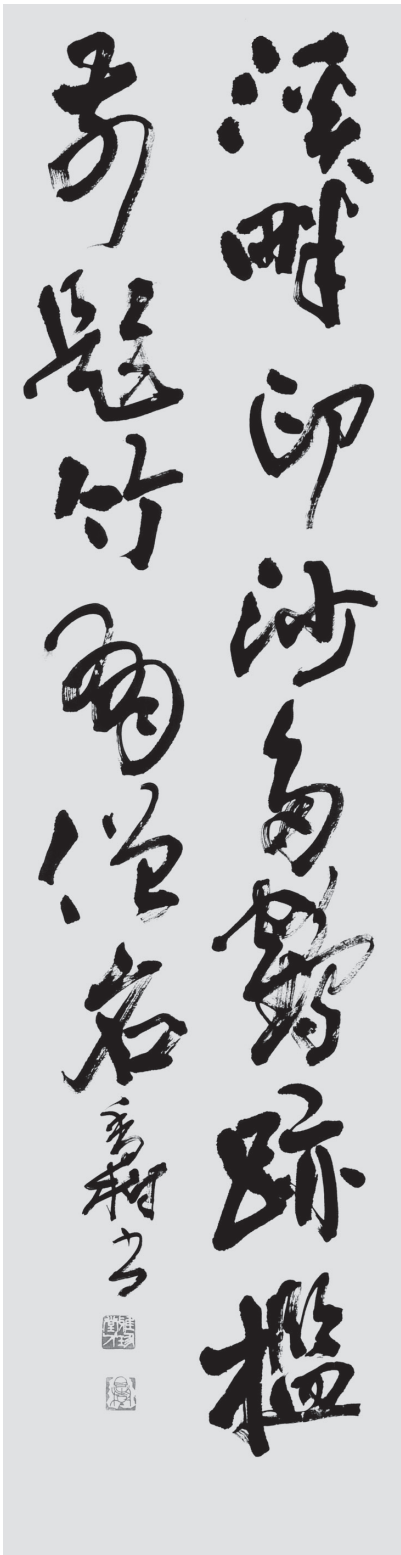 溪畔印沙多鶴跡檻
前題竹有僧名 書